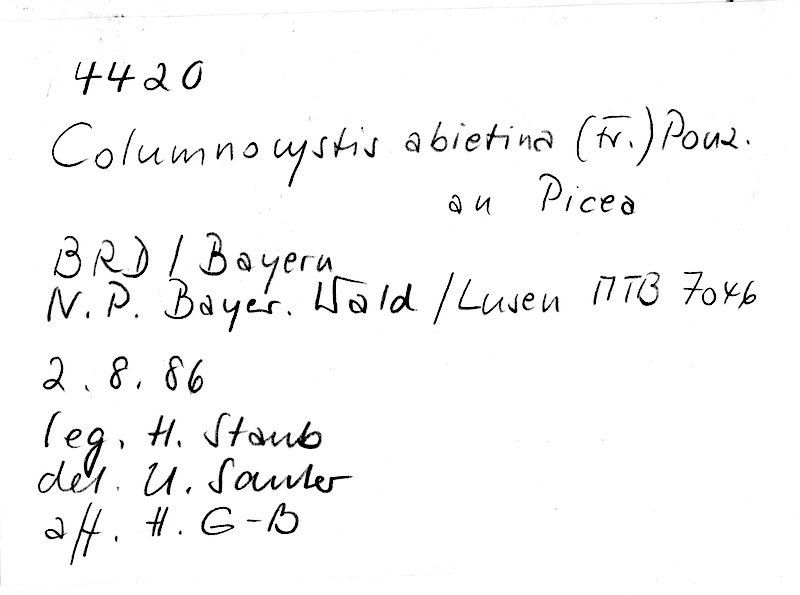 4420
Columnocystis abietina (Fr.) Pouz.
an Picea
BRD / Bayern
N.P. Bayer. Wald / Lusen MTB 7046
2.8.86
leg. H. Staub
det. U. Sauter
aff. H. G-B